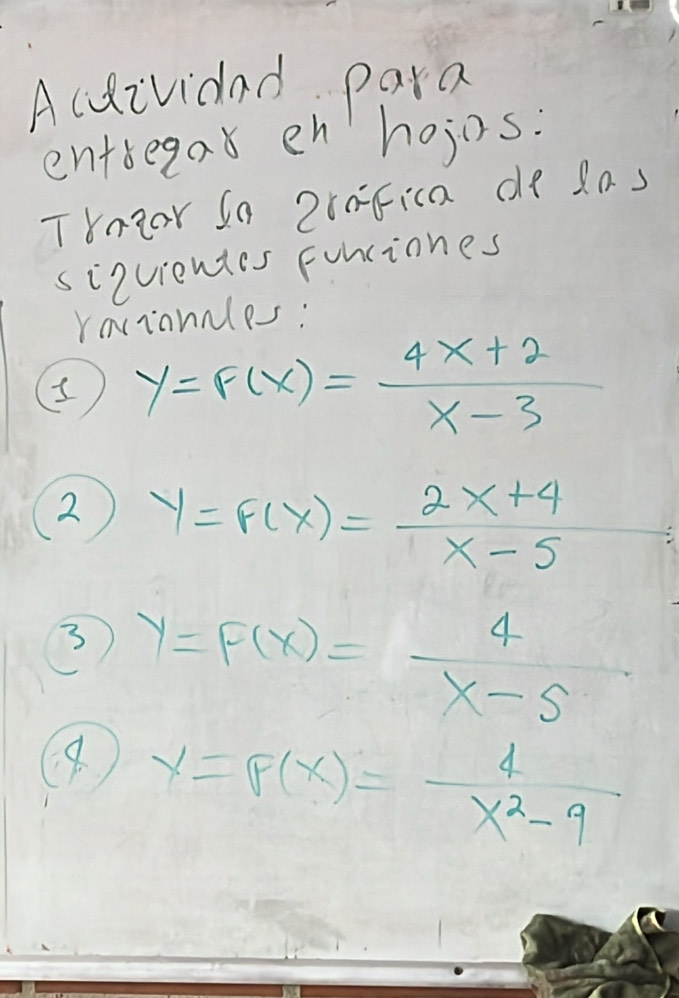 Actividad para
entregar en hojas:
Trazar la gráfica de las
siguientes funciones
racionales:
① Y=F(X)= \frac{4X+2}{X-3}
② Y=F(X)= \frac{2X+4}{X-5}
③ Y=F(X)= \frac{4}{X-5}
④ Y=F(X)= \frac{4}{X²-9}